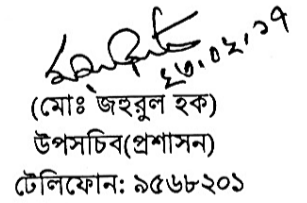 ২৩.০২.১৭
(মোঃ জহুরুল হক)
উপসচিব(প্রশাসন)
টেলিফোন: ৯৫৬৮২০১